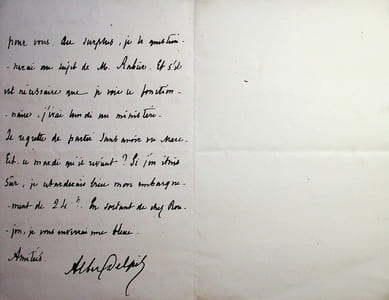 pour vous. Au surplus, je le question-
-nerai au sujet de M. Aubier. Et s'il
est nécessaire que je voie ce fonction-
-naire, j'irai lundi au ministère.
Je regrette de partir sans avoir vu Marc.
Est-ce mardi qu'il revient ? Si j'en étais
sûr, je retarderais bien mon embarque-
-ment de 24 h. En sortant de chez Rou-
-jon, je vous enverrai une bleue.
Amitiés.
Albert Delpit